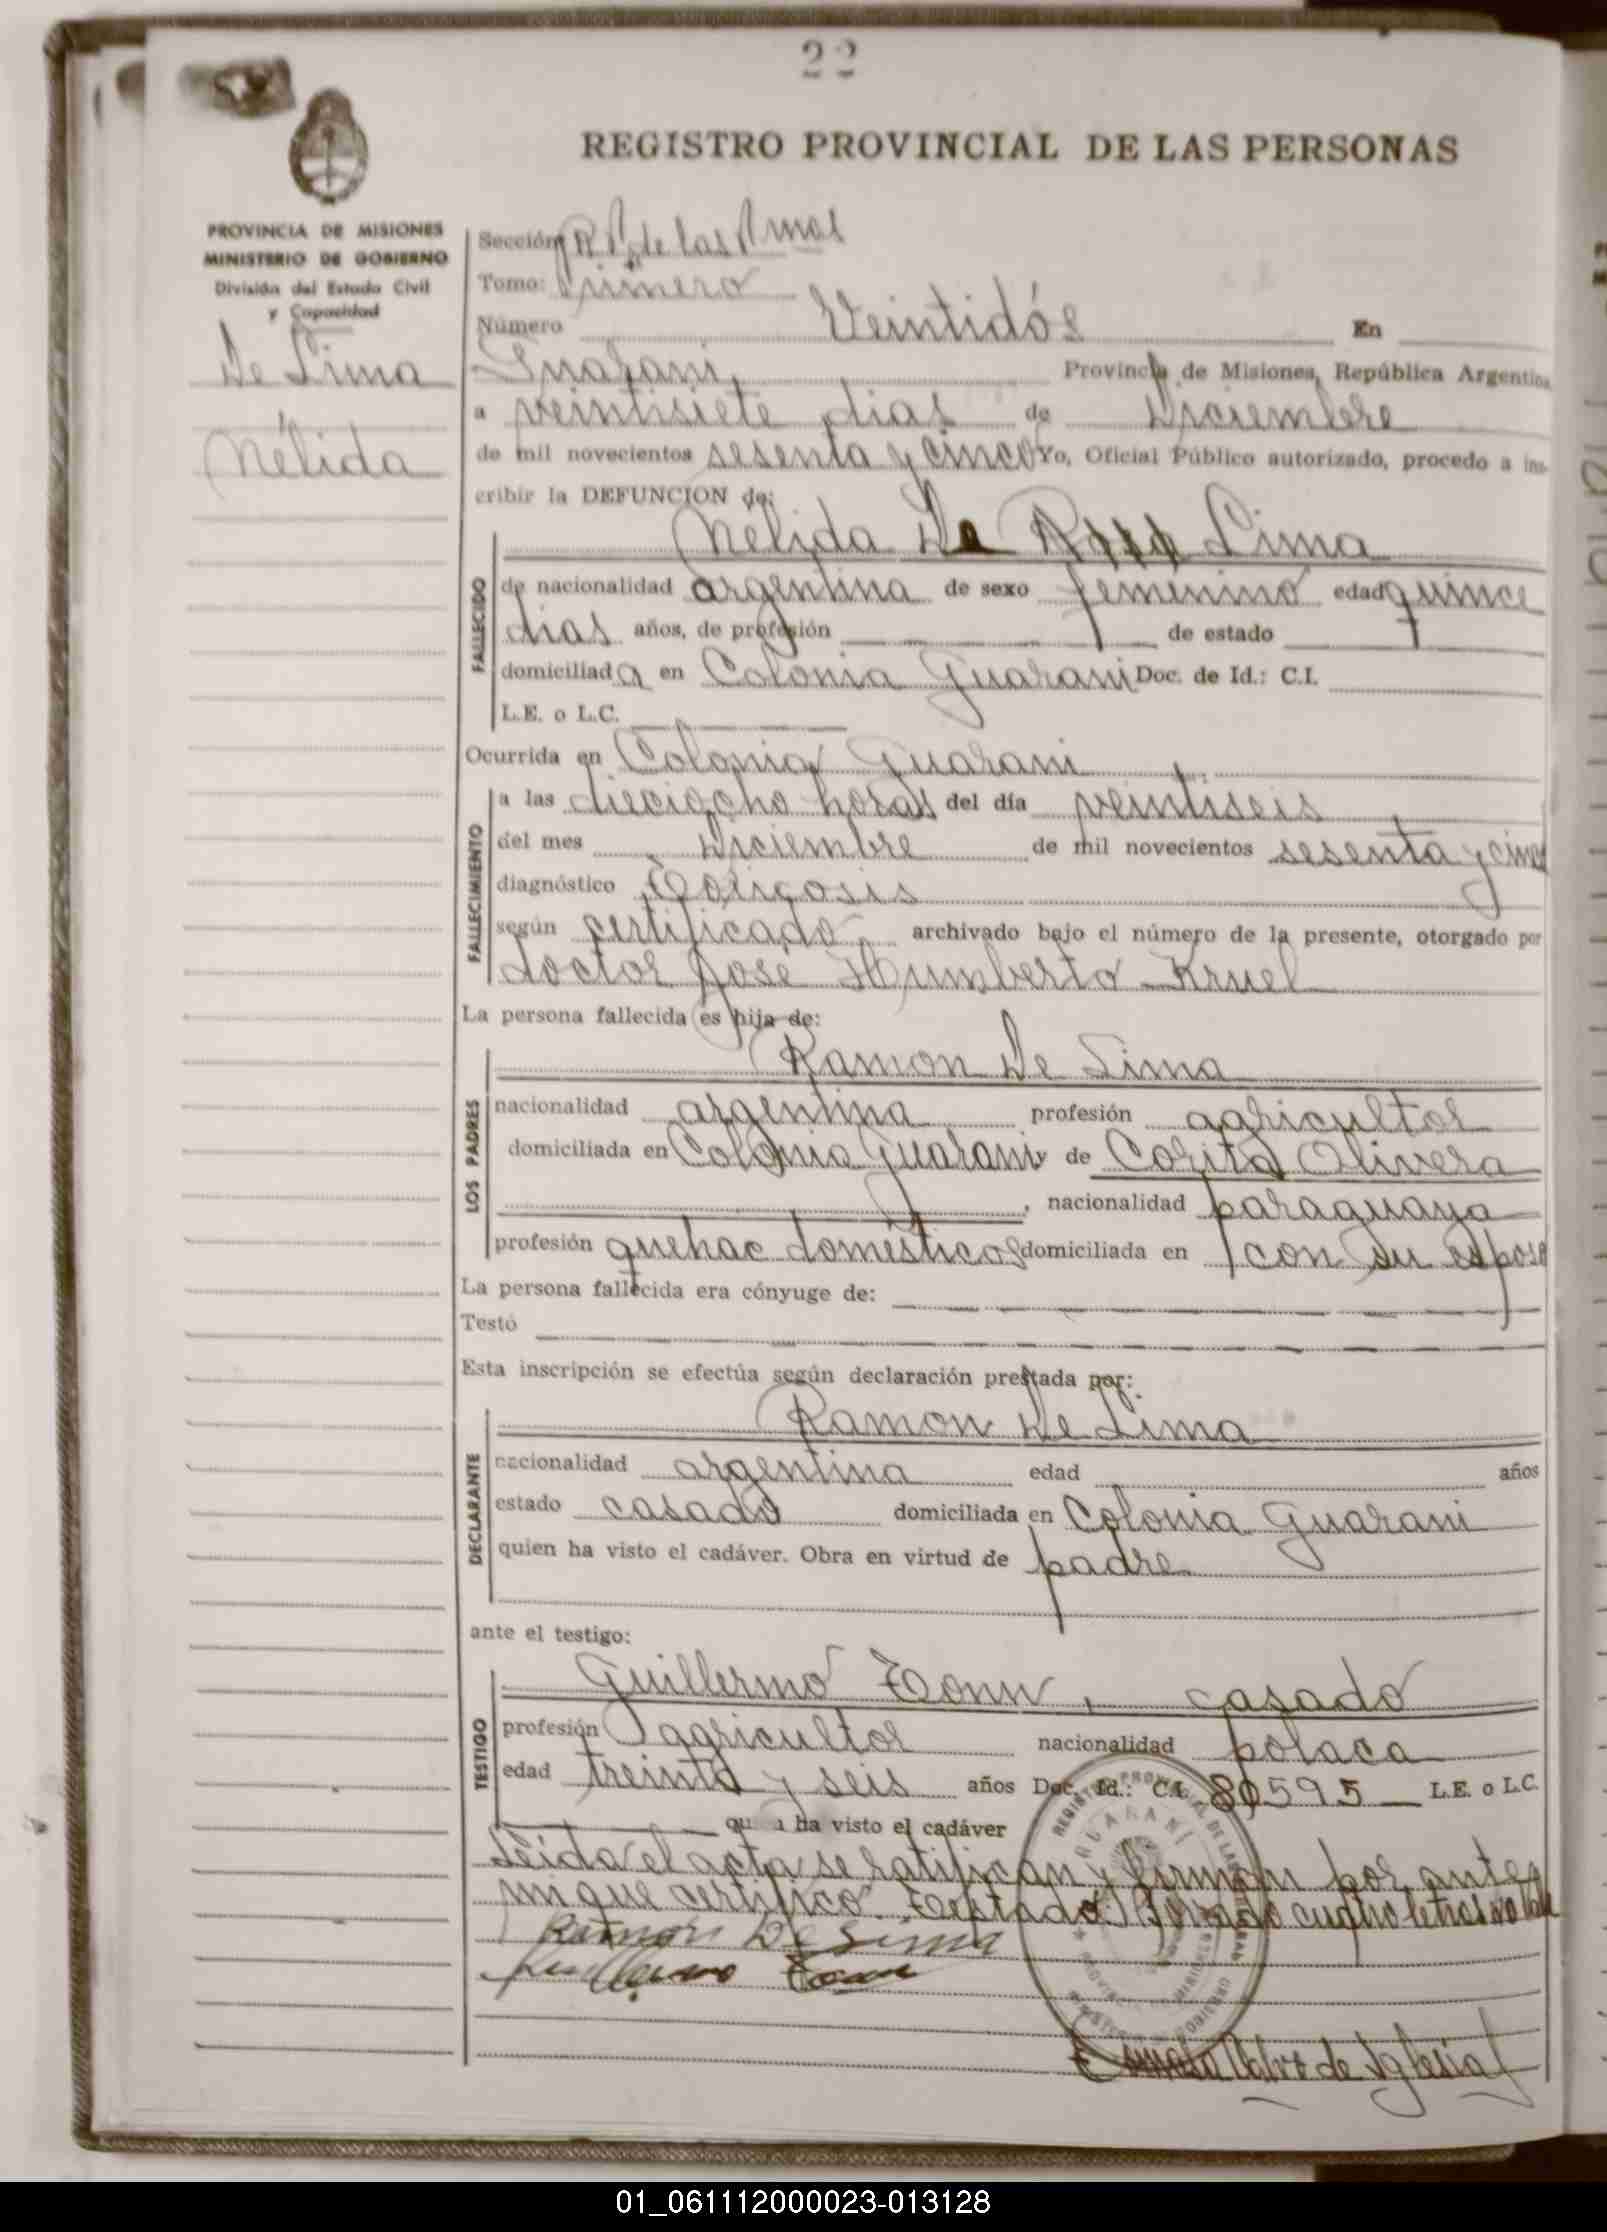 22
REGISTRO PROVINCIAL DE LAS PERSONAS
PROVINCIA DE MISIONES
MINISTERIO DE GOBIERNO
División del Estado Civil
y Capacidad
De Lima
Nélida
Sección R. P. de las
Tomo: Primero
Número Veintidós En
Guarani, Provincia de Misiones, República Argentina
a veintisiete dias de Diciembre
de mil novecientos sesenta y cinco Yo, Oficial Público autorizado, procedo a ins-
cribir la DEFUNCION de:
Nélida De Lima
FALLECIDO
de nacionalidad argentina de sexo femenino edad quince
dias años, de profesión de estado
domiciliada en Colonia Guarani Doc. de Id.: C.I.
L.E. o L.C.
Ocurrida en Colonia Guarani
FALLECIMIENTO
a las dieciocho horas del día veintiseis
del mes Diciembre de mil novecientos sesenta y cinco
diagnóstico
según certificado archivado bajo el número de la presente, otorgado por
doctor José Humberto Kruel
La persona fallecida es hija de:
LOS PADRES
Ramon De Lima
nacionalidad argentina profesión agricultor
domiciliada en Colonia Guarani y de Corita Olivera
, nacionalidad paraguaya
profesión quehac domesticos domiciliada en con su esposo
La persona fallecida era cónyuge de:
Testó
Esta inscripción se efectúa según declaración prestada por:
DECLARANTE
Ramon De Lima
nacionalidad argentina edad años
estado casado domiciliada en Colonia Guarani
quien ha visto el cadáver. Obra en virtud de padre
ante el testigo:
TESTIGO
Guillermo Tonn, casado
profesión agricultor nacionalidad polaca
edad treinta y seis años Doc. Id.: C.I. 80595 L.E. o L.C.
quien ha visto el cadáver
Leida el acta se ratifican y firman por ante
mi que certifico. Testado: cuatro letras no vale
Ramon De Lima
Guillermo Tonn
de Iglesias
01_061112000023-013128